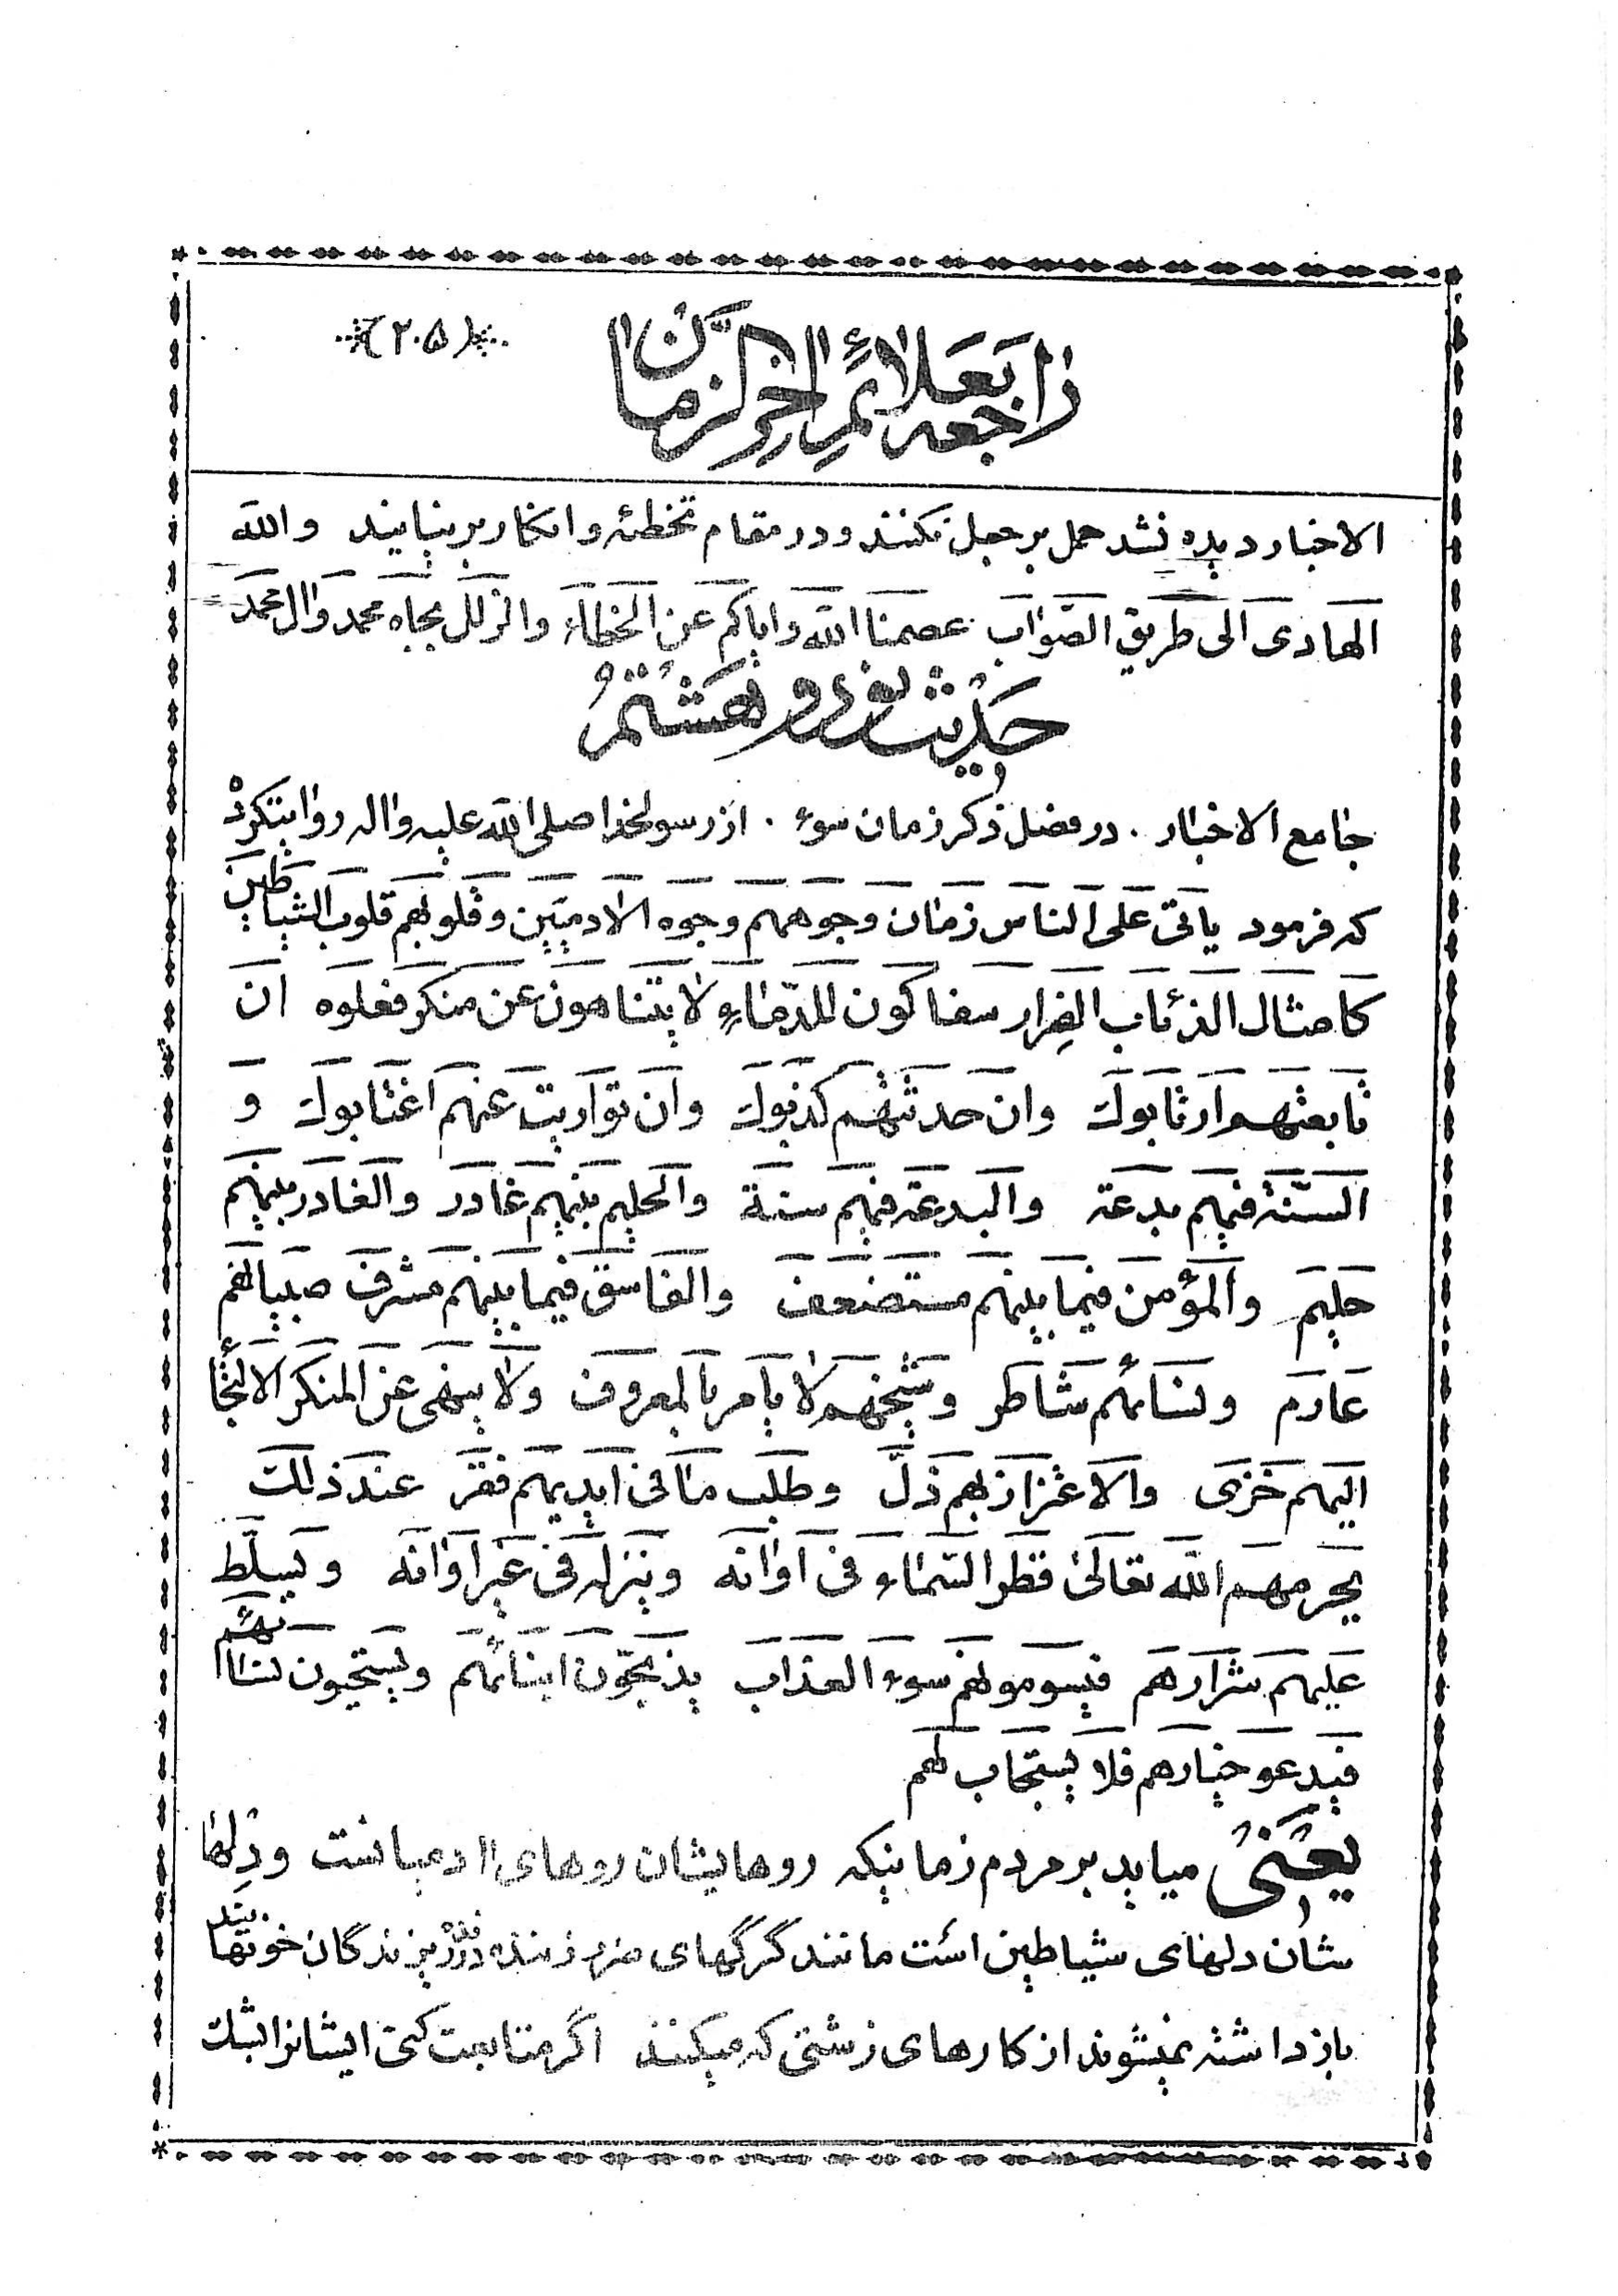 (۲۰۵)
راجعه بعلائم اخرالزمان
الاخبار دیده نشد حمل بر جهل نکنند و در مقام تخطئه و انکار بر نیایند والله
الهادی الی طریق الصّواب عصمنا الله وایاکم عن الخطاء والزلل بجاه محمد وال محمد
حدیث نود و هشتم
جامع الاخبار . در فضل ذکر زمان سوء . از رسولخدا صلی الله علیه واله روایتکرده
که فرمود یاتی علی الناس زمان وجوههم وجوه الادمیین وقلوبهم قلوب الشیاطین
کامثال الذئاب الضرار سفاکون للدّماء لا یتناهون عن منکر فعلوه ان
تابعتهم ارتابوك وان حدثتهم کذبوك وان تواریت عنهم اغتابوك و
السّنة فیهم بدعة والبدعة فیهم سنة والحلیم بینهم غادر والغادر بینهم
حلیم والمؤمن فیما بینهم مستضعف والفاسق فیما بینهم مشرف صبیانهم
عارم ونسائهم شاطر وشیخهم لا یامر بالمعروف ولا ینهی عن المنکر الالتجاء
الیهم خزی والاعتزاز بهم ذلّ وطلب ما فی ایدیهم فقر عند ذلك
یحرمهم الله تعالی قطر السّماء فی اوانه وینزله فی غیر اوانه ویسلّط
علیهم شرارهم فیسومونهم سوء العذاب یذبحّون ابنائهم ویستحیون نسائهم
فیدعو خیارهم فلا یستجاب لهم
یعنی میاید بر مردم زمانیکه روهایشان روهای ادمیانست و دلها
شان دلهای شیاطین است مانند گرگهای ضرر زننده ریزندگان خونها
باز داشته نمیشوند از کارهای زشتی که میکنند اگر متابعت کنی ایشانرا بشك